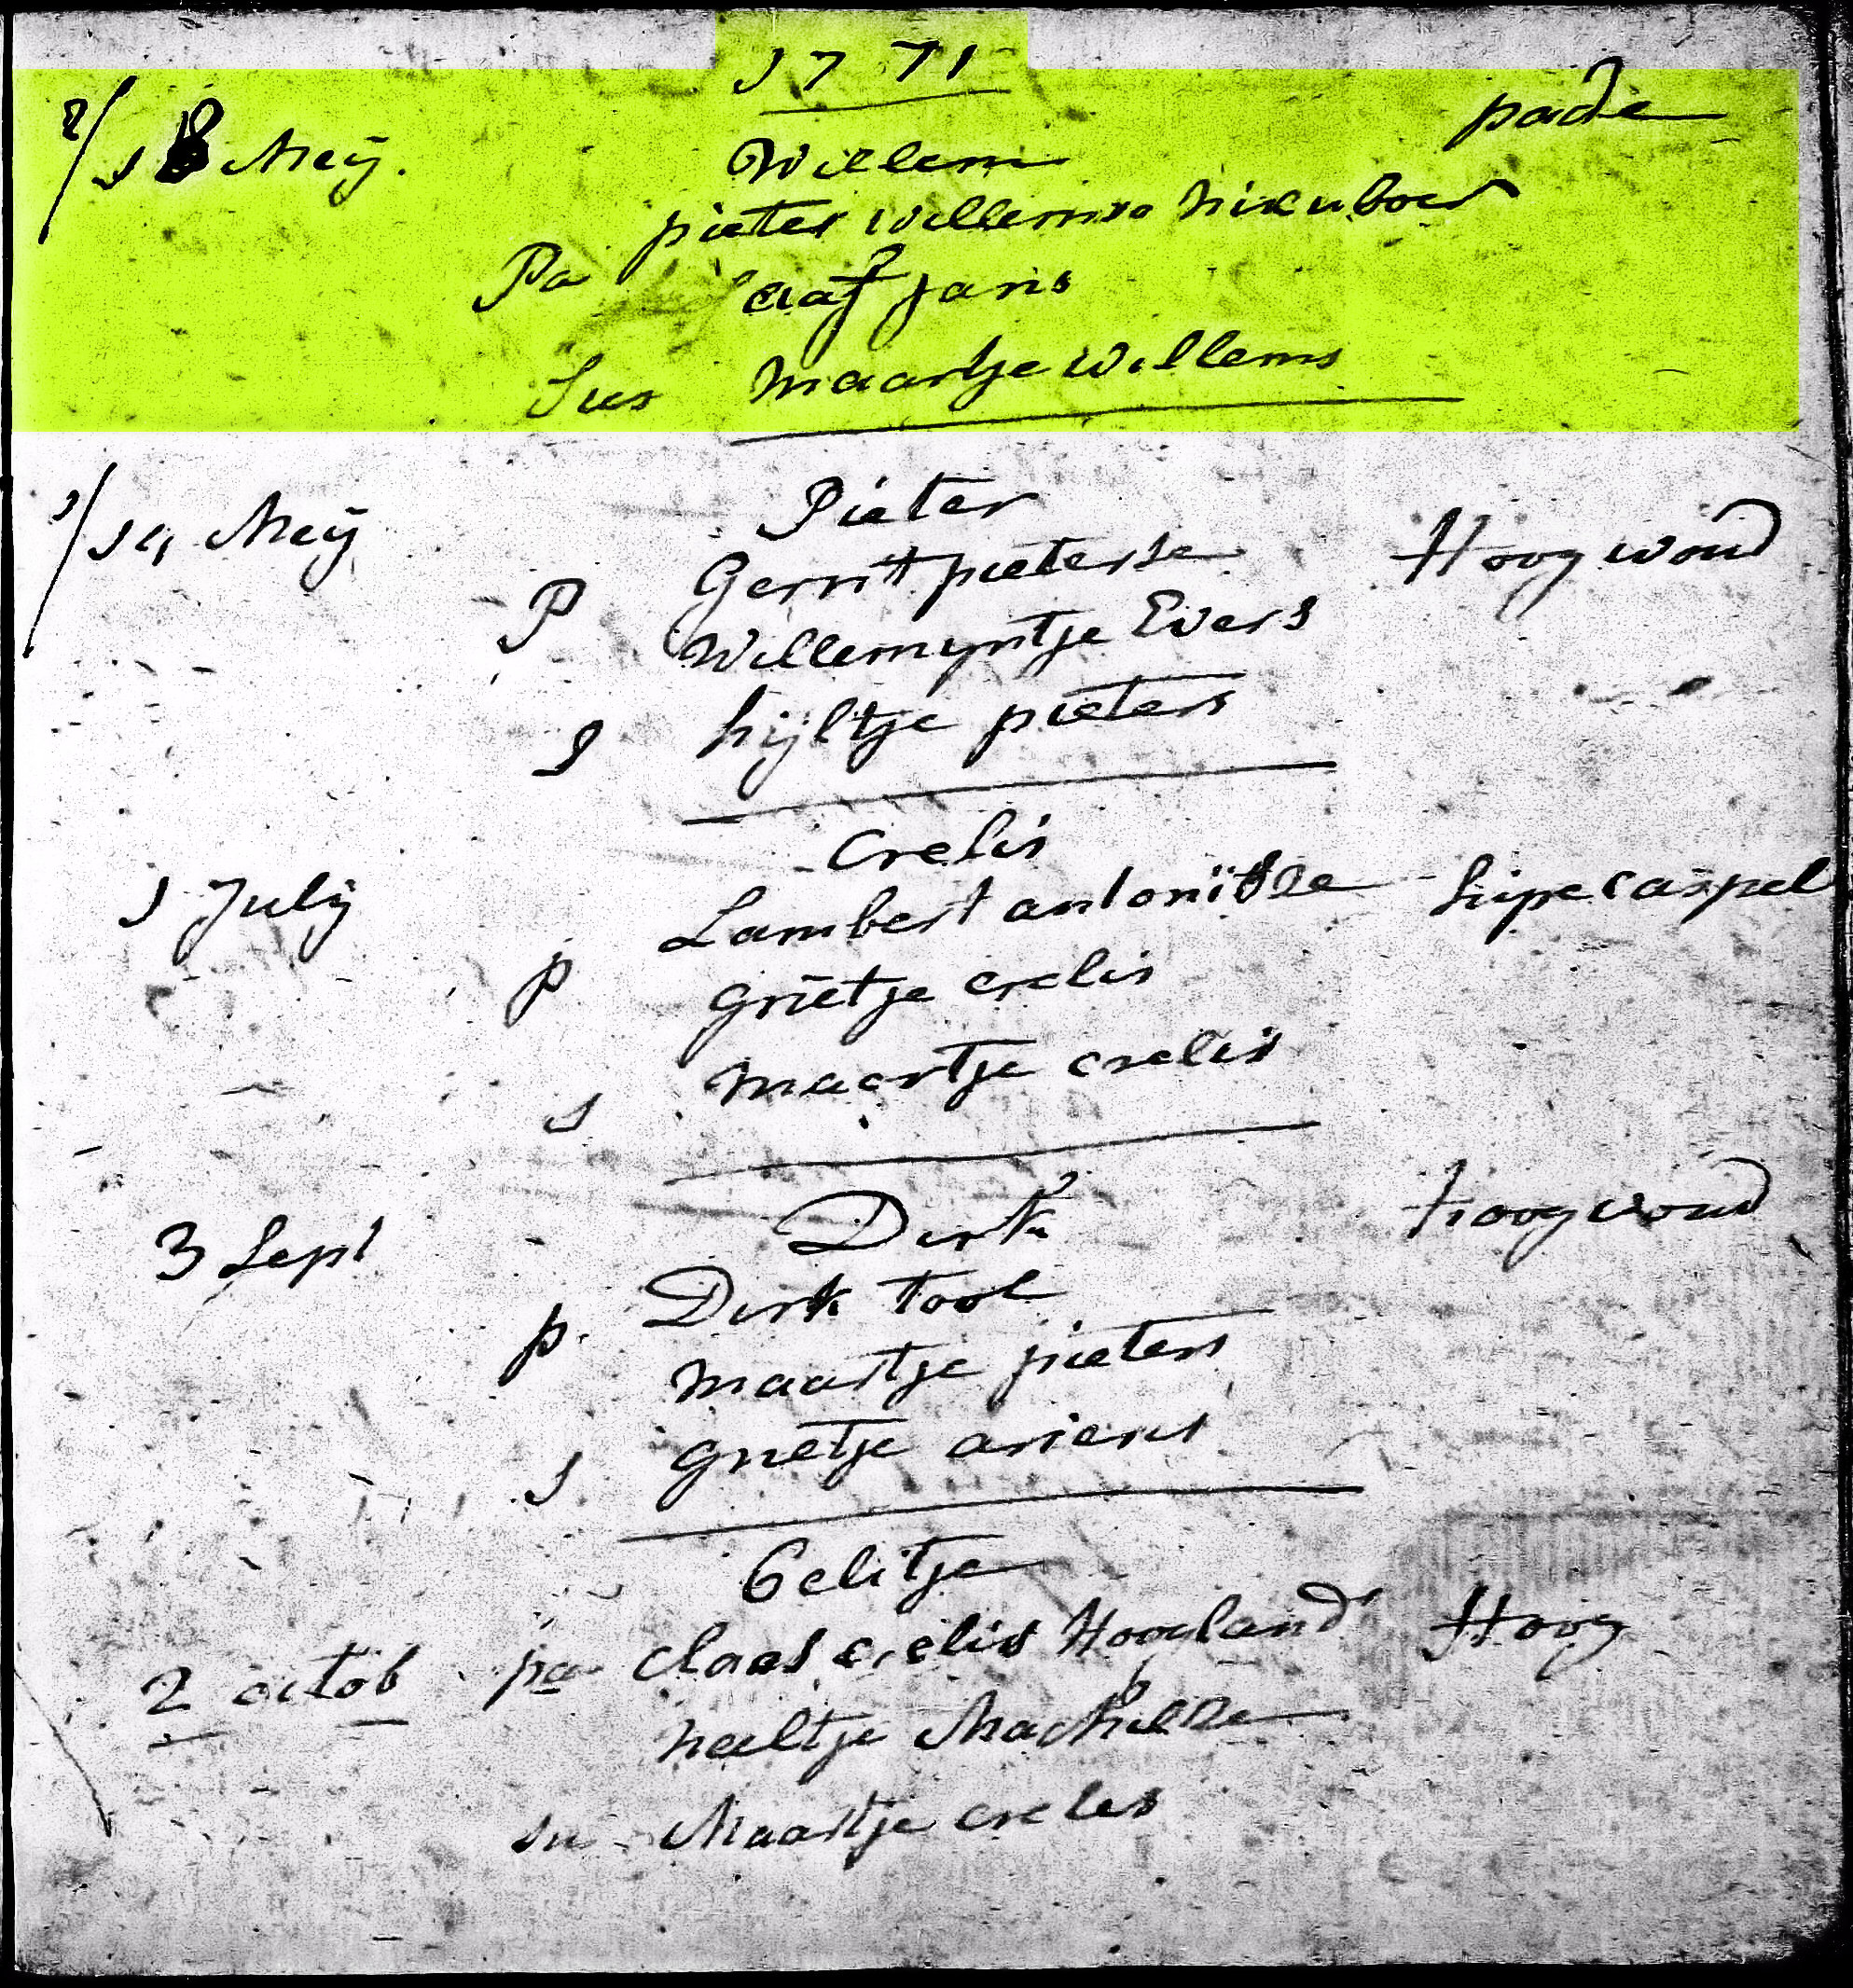 1771
2/ 18 Meÿ. Willem pade
pieter willemse nieuboer
Pa aafjans
Sus maartje willems
1/ 14 Meÿ Pieter
Gerrit pieterse Hoogwoud
P Willemyntje Evers
S hijltje pieters
Crelis
1 Julÿ Lambert antonisse
p grietje crelis
s maartje crelis
Dirk Hoogwoud
3 Sept Dirk Tool
p. maartje pieters
s grietje ariens
Gelitje
2 octob pa Claas crelis Hoogland Hoog
neeltje
su Maartje creles